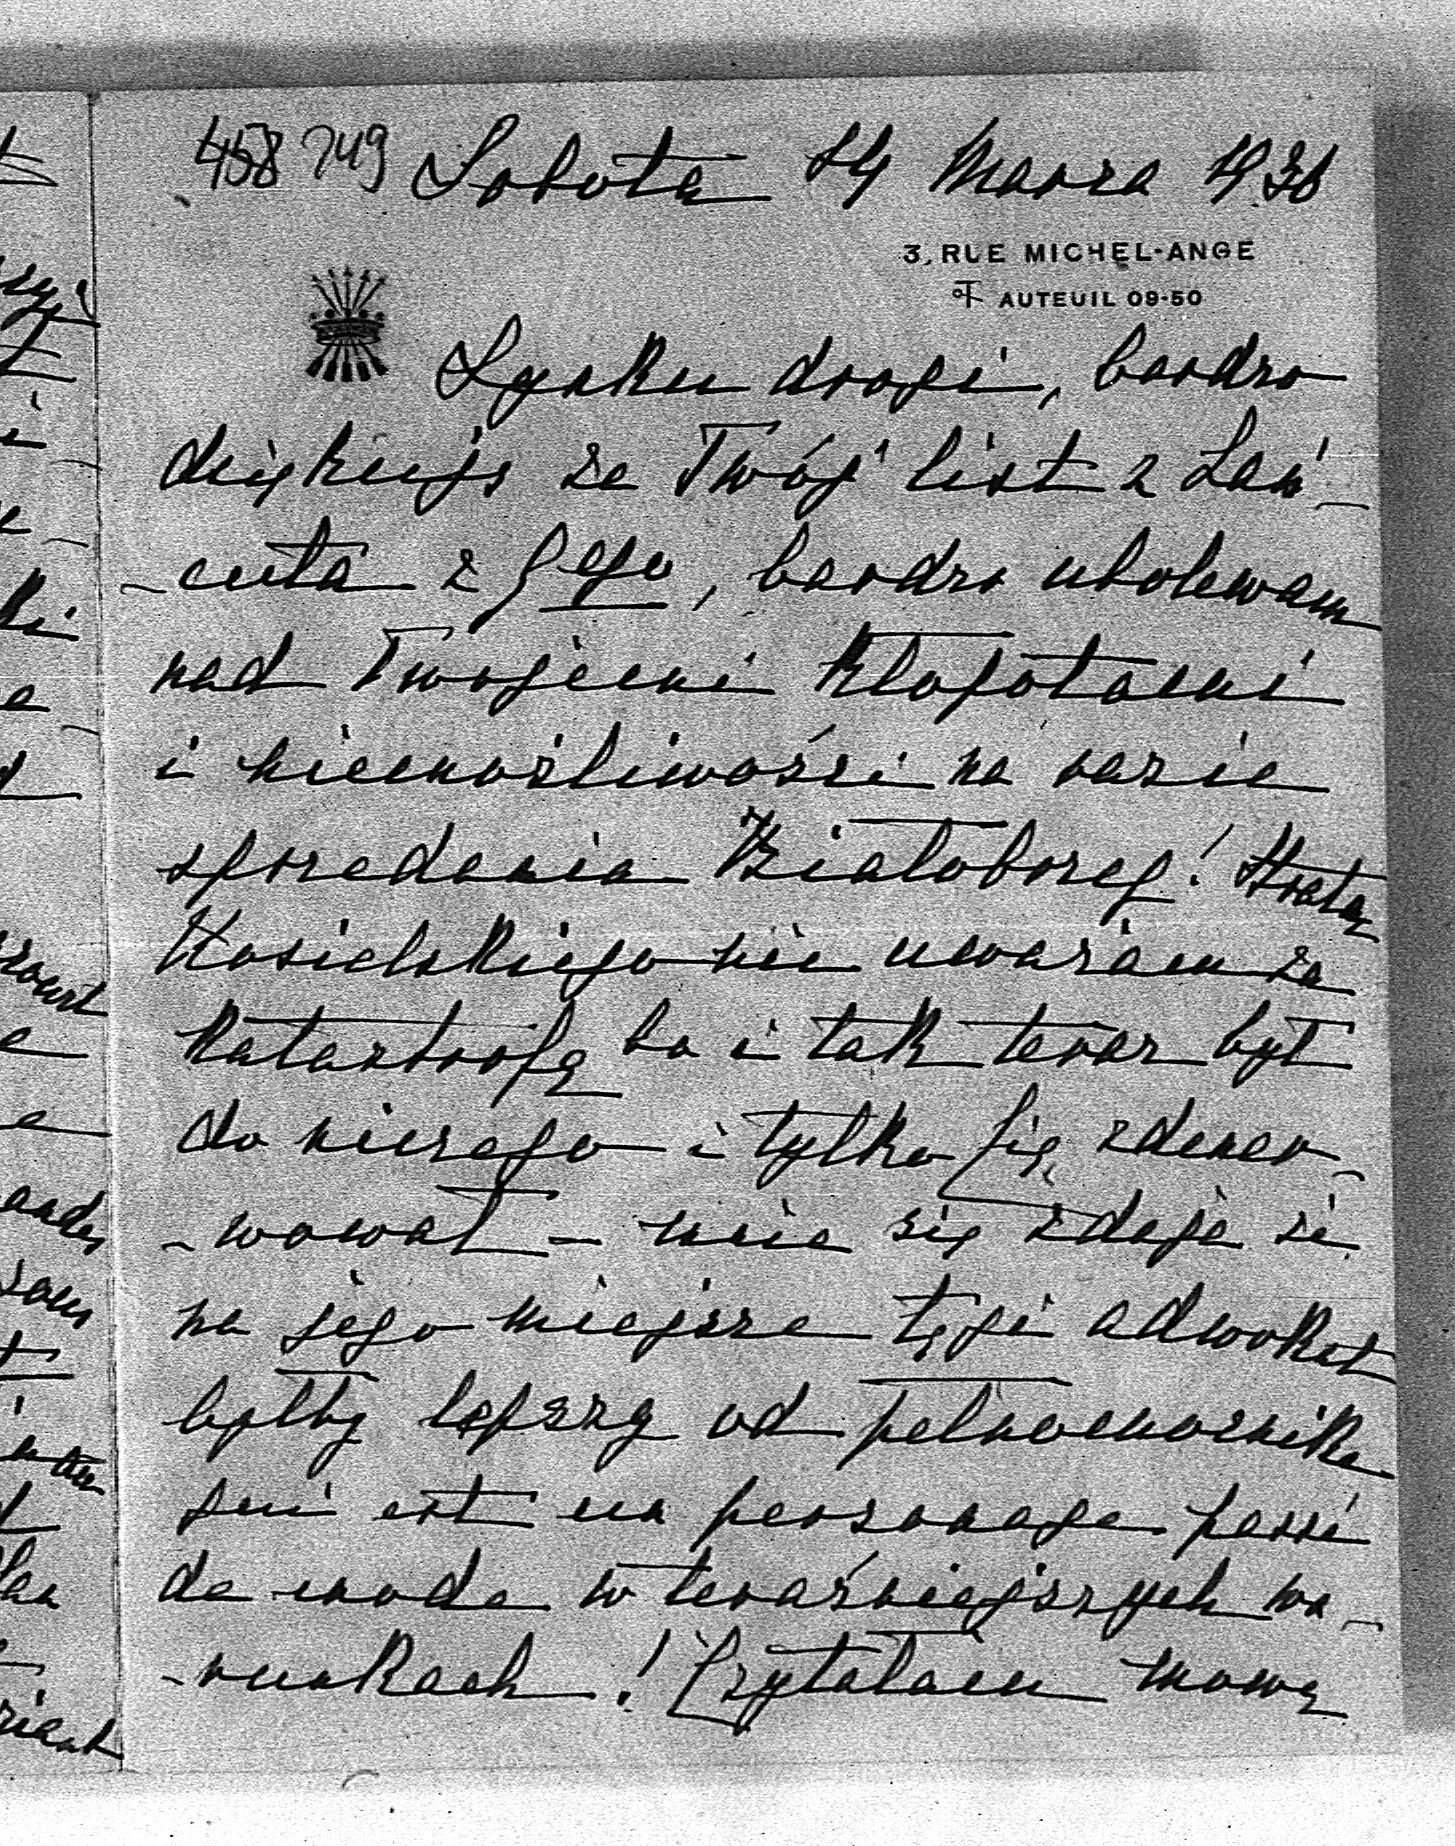 458 749 Sobota 14 Marza 1936
3, RUE MICHEL-ANGE
AUTEUIL 09-50
Synku drogi, bardzo
dziękuję za Twój list z Łań-
-cuta z 9go, bardzo ubolewam
nad Twojemi kłopotami
i niemożliwości na razie
sprzedania Białobrzeg! Stratę
Kosielskiego nie uważam za
katastrofę bo i tak teraz był
do niczego i tylko Cię zdener-
-wował – mnie się zdaje że
na jego miejsce tęgi adwokat
byłby lepszy od pełnomocnika
qui est un personage passé
de mode w teraźniejszych wa-
-runkach! Czytałam mowę